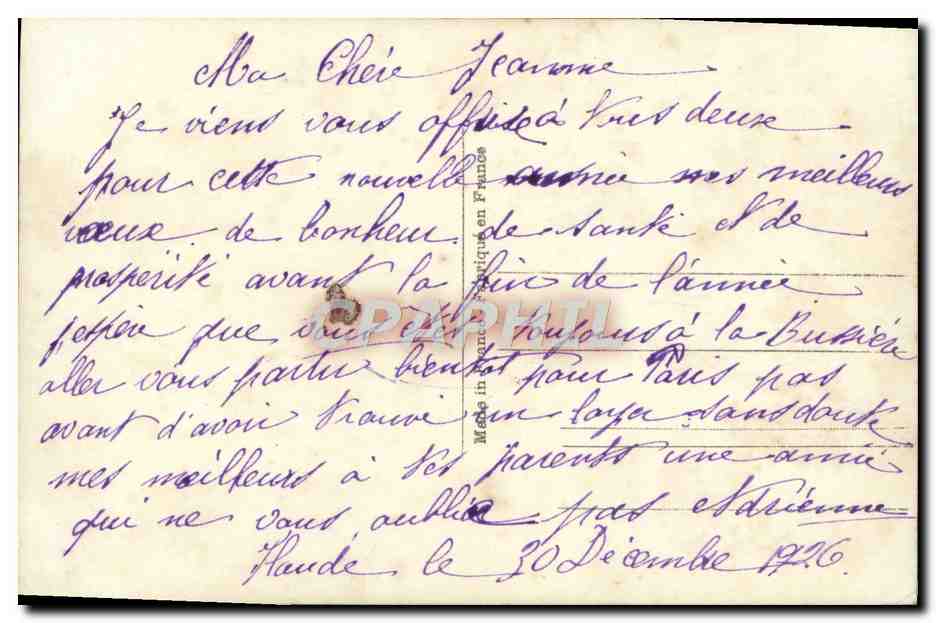 Ma Chére Jeanne
Je viens vous offrire à Vous deux
pour cette nouvelle année mes meilleurs
vœux de bonheur de santé et de
prosperité avant la fin de l'année
j'espére que vous êtes toujours à la Bussière
aller vous partir bientot pour Paris pas
avant d'avoir trouvé un loyer sans doute
mes meilleurs à tes parents une amie
qui ne vous oublie pas Adrienne
le 30 Décembre 1926
Made in France Fabriqué en France
CPAPHIL